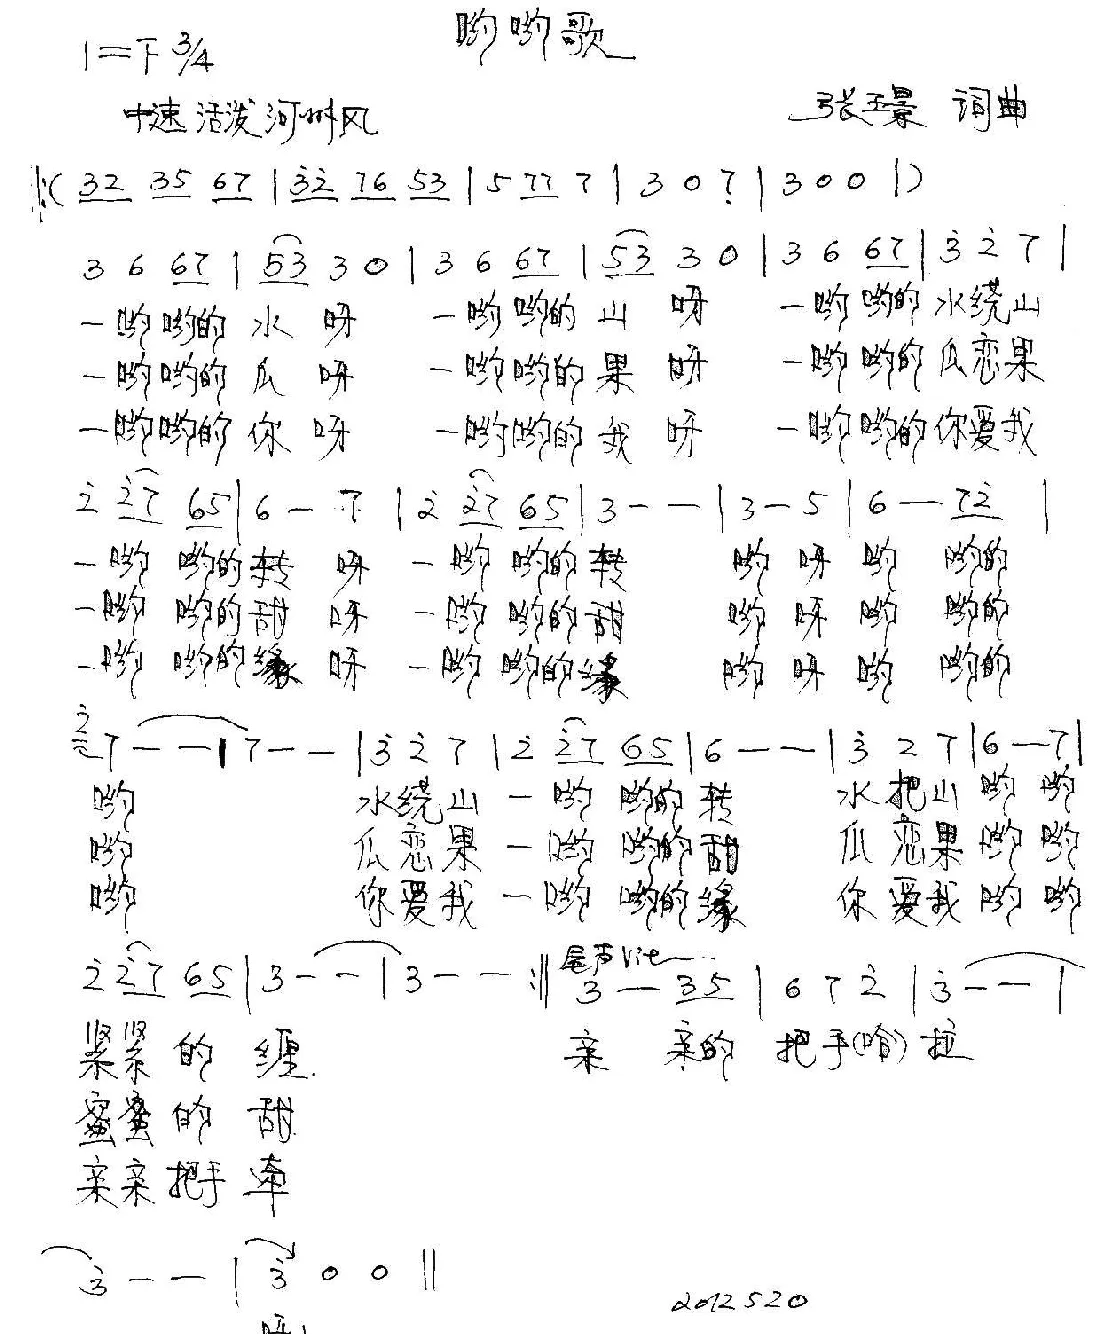 哟哟歌
1=F 3/4
中速 活泼 河州风
张玉景 词曲
‖:( 32 35 67 | 3̇2̇ 76 53 | 5 77 7 | 3 0 7 | 3 0 0 | )
3 6 67 | 53 3 0 | 3 6 67 | 53 3 0 | 3 6 67 | 3̇ 2̇ 7 |
一哟哟的 水 呀 一哟哟的 山 呀 一哟哟的 水绕山
一哟哟的 瓜 呀 一哟哟的 果 呀 一哟哟的 瓜恋果
一哟哟的 你 呀 一哟哟的 我 呀 一哟哟的 你爱我
2̇ 2̇7 65 | 6 — 7 | 2̇ 2̇7 65 | 3 — — | 3 — 5 | 6 — 72̇ |
一哟 哟的 转 呀 一哟 哟的 转 哟 呀 哟 哟的
一哟 哟的 甜 呀 一哟 哟的 甜 哟 呀 哟 哟的
一哟 哟的 缘 呀 一哟 哟的 缘 哟 呀 哟 哟的
2̇ 7 — — | 7 — — | 3̇ 2̇ 7 | 2̇ 2̇7 65 | 6 — — | 3̇ 2 7 | 6 — 7 |
哟 水绕山 一哟 哟的 转 水把山 哟 哟
哟 瓜恋果 一哟 哟的 甜 瓜恋果 哟 哟
哟 你爱我 一哟 哟的 缘 你爱我 哟 哟
2̇ 2̇7 65 | 3 — — | 3 — — :‖ 尾声 rit 3 — 35 | 6 7 2̇ | 3̇ — — |
紧紧 的 缠 亲 亲的 把手(哈) 拉
蜜蜜 的 甜
亲亲 把手 牵
3̇ — — | 3̇ 0 0 ‖
2012520